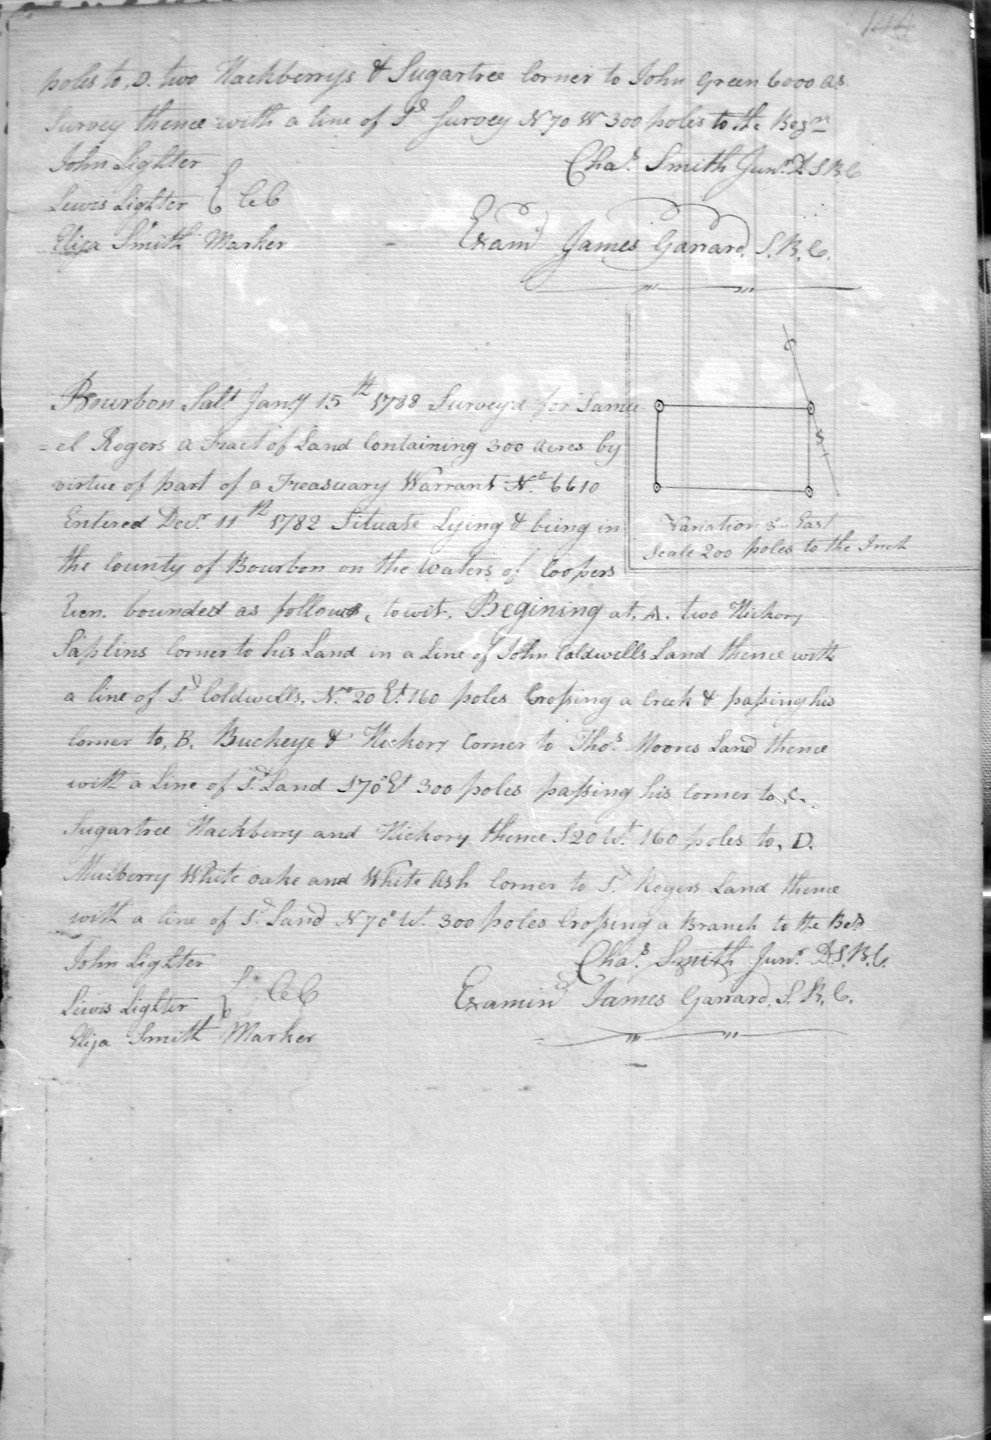 144
poles to, D. two Hackberrys & Sugartree Corner to John Green 6000 as.
Survey thence with a line of Sd Survey N 70 W 300 poles to the Begng
John Lighter
Chas. Smith Junr. D S B C
Lewis Lighter } C C
Elija Smith Marker - Examd James Garrard, S. B. C.
Bourbon Sat. Jany 15th 1788 Survey'd for Samu
=el Rogers a Tract of Land Containing 300 acres by
virtue of part of a Treasuary Warrant No. 6610
Entered Decr. 11th 1782 Situate Lying & being in
the County of Bourbon on the waters of Coopers
Run. bounded as follows, towit. Begining at, A. two Hickory
Saplins Corner to his Land in a Line of John Coldwells Land thence with
a line of Sd Coldwells, No 20 Et 160 poles Crossing a Creek & passing his
Corner to, B. Buckeye & Hickory Corner to Thos. Moores Land thence
with a Line of Sd Land S 70° Et 300 poles passing his Corner to, C.
Sugartree Hackberry and Hickory thence S 20 Wt. 160 poles to, D.
Mulberry White oake and White Ash Corner to Sd Rogers Land thence
with a line of Sd Land N 70° Wt. 300 poles Crossing a Branch to the Beg
John Lighter
Chas. Smith Junr. D. S. B. C.
Lewis Lighter } C C
Examind James Garrard, S. B. C.
Elija Smith Marker
S
Variation East
Scale 200 poles to the Inch